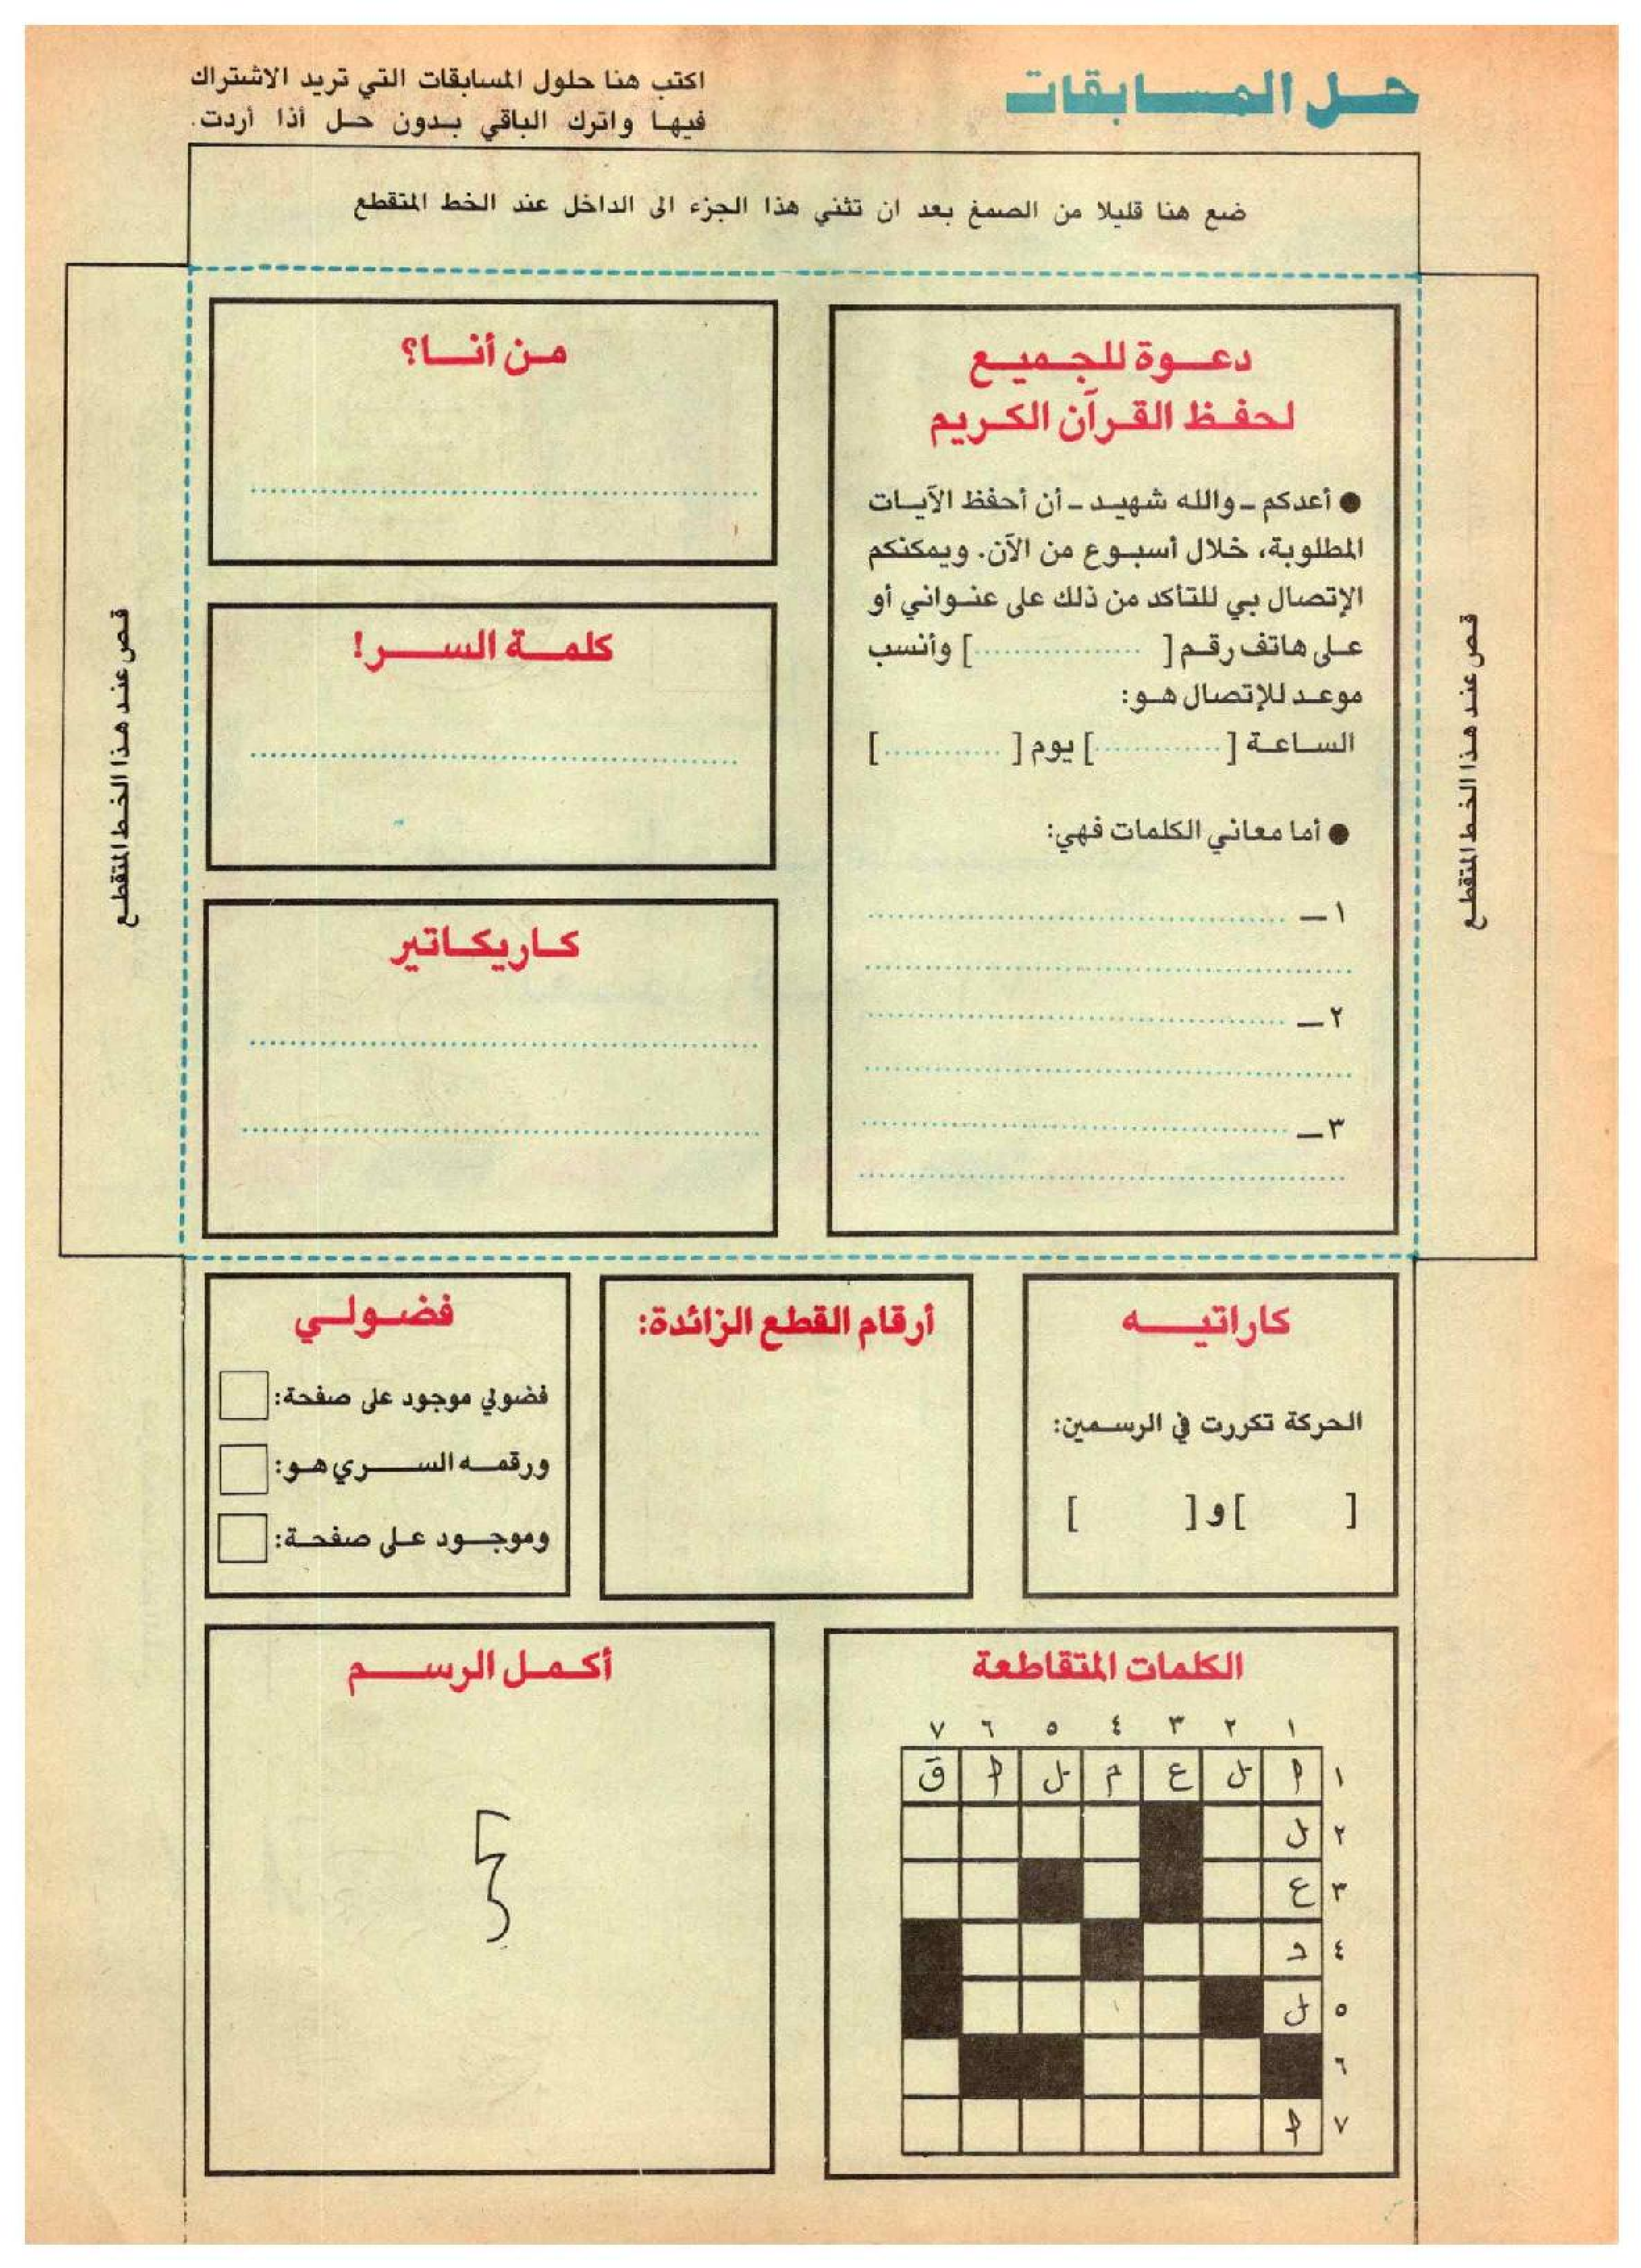 حل المسابقات
اكتب هنا حلول المسابقات التي تريد الاشتراك
فيها واترك الباقي بدون حل أذا أردت.
ضع هنا قليلا من الصمغ بعد ان تثني هذا الجزء الى الداخل عند الخط المتقطع
قص عند هذا الخط المتقطع
دعوة للجميع
لحفظ القرآن الكريم
● أعدكم - والله شهيد - أن أحفظ الآيات
المطلوبة، خلال أسبوع من الآن. ويمكنكم
الإتصال بي للتأكد من ذلك على عنواني أو
على هاتف رقم [ .................] وأنسب
موعد للإتصال هو:
الساعة [ .............] يوم [ ............]
● أما معاني الكلمات فهي:
١ –
٢ –
٣ –
من أنا؟
كلمة السر!
كاريكاتير
قص عند هذا الخط المتقطع
كاراتيه
الحركة تكررت في الرسمين:
[ ] و [ ]
أرقام القطع الزائدة:
فضولي
فضولي موجود على صفحة:
ورقمه السري هو:
وموجود على صفحة:
الكلمات المتقاطعة
١ ٢ ٣ ٤ ٥ ٦ ٧
١ ا ل ع م ل ا ق
٢ ل
٣ ع
٤ د
٥ ل
٦
٧ ا
أكمل الرسم